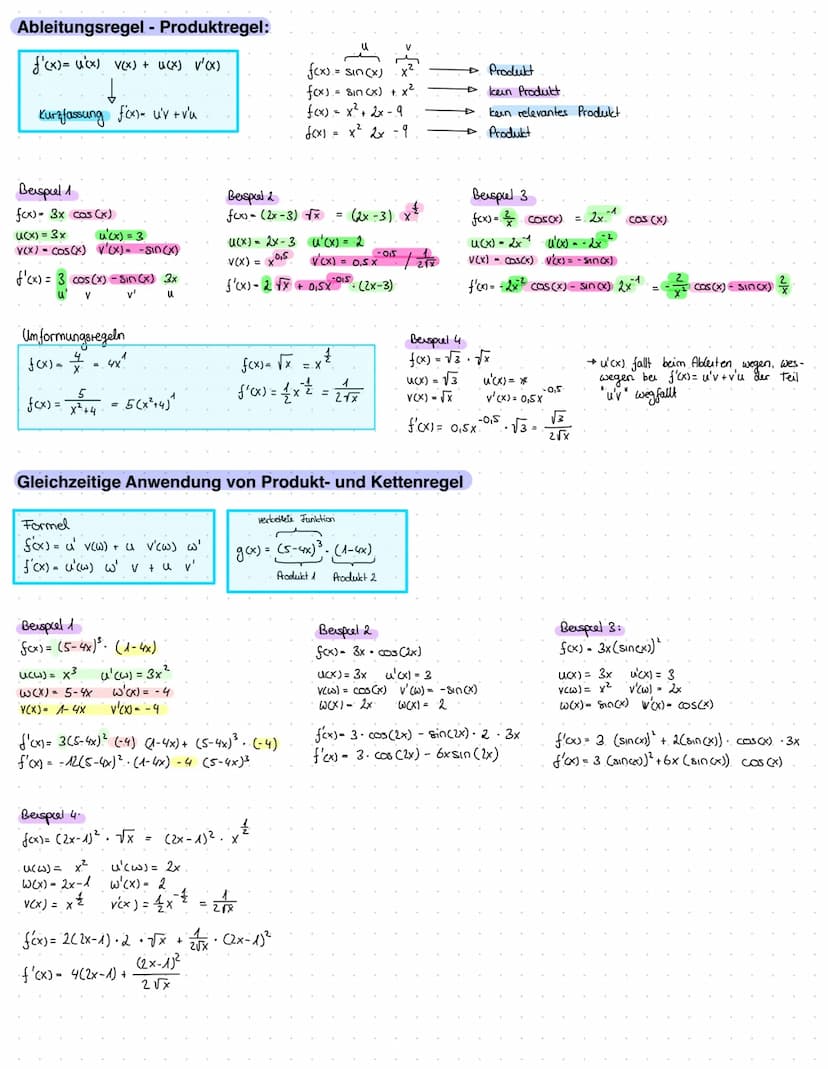 Ableitungsregel - Produktregel:
f'(x)= u'(x) v(x) + u(x) v'(x)
Kurzfassung f'(x)= u'v + v'u
u v
f(x) = sin(x) x² → Produkt
f(x) = sin(x) + x² → kein Produkt
f(x) = x² + 2x - 9 → kein relevantes Produkt
f(x) = x² 2x - 9 → Produkt
Beispiel 1
f(x) = 3x cos(x)
u(x) = 3x u'(x) = 3
v(x) = cos(x) v'(x) = -sin(x)
f'(x) = 3 cos(x) - sin(x) 3x
u' v v' u
Beispiel 2
f(x) = (2x-3) √x = (2x-3) x^½
u(x) = 2x-3 u'(x) = 2
v(x) = x^0,5 v'(x) = 0,5x^-0,5 / 1/(2√x)
f'(x) = 2 √x + 0,5x^-0,5 · (2x-3)
Beispiel 3
f(x) = 2/x cos(x) = 2x⁻¹ cos(x)
u(x) = 2x⁻¹ u'(x) = -2x⁻²
v(x) = cos(x) v'(x) = -sin(x)
f'(x) = -2x⁻² cos(x) - sin(x) 2x⁻¹ = -2/x² cos(x) - sin(x) 2/x
Umformungsregeln
f(x) = 4/x = 4x¹
f(x) = 5/(x²+4) = 5(x²+4)¹
f(x) = √x = x^½
f'(x) = ½x^-½ = 1/(2√x)
Beispiel 4
f(x) = √3 · √x
u(x) = √3 u'(x) = *
v(x) = √x v'(x) = 0,5x^-0,5
f'(x) = 0,5x^-0,5 · √3 = √3/(2√x)
→ u'(x) fällt beim Ableiten wegen, wes-
wegen bei f'(x) = u'v + v'u der Teil
"u'v" wegfällt
Gleichzeitige Anwendung von Produkt- und Kettenregel
Formel
f'(x) = u' v(w) + u v'(w) w'
f'(x) = u'(w) w' v + u v'
verkettete Funktion
g(x) = (5-4x)³ · (1-4x)
Produkt 1 Produkt 2
Beispiel 1
f(x) = (5-4x)³ · (1-4x)
u(w) = x³ u'(w) = 3x²
w(x) = 5-4x w'(x) = -4
v(x) = 1-4x v'(x) = -4
f'(x) = 3(5-4x)² (-4) (1-4x) + (5-4x)³ · (-4)
f'(x) = -12(5-4x)² · (1-4x) - 4 (5-4x)³
Beispiel 2
f(x) = 3x · cos(2x)
u(x) = 3x u'(x) = 3
v(w) = cos(x) v'(w) = -sin(x)
w(x) = 2x w(x) = 2
f'(x) = 3 · cos(2x) - sin(2x) · 2 · 3x
f'(x) = 3 · cos(2x) - 6x sin(2x)
Beispiel 3:
f(x) = 3x(sin(x))²
u(x) = 3x u'(x) = 3
v(w) = x² v'(w) = 2x
w(x) = sin(x) w'(x) = cos(x)
f'(x) = 3 (sin(x))² + 2(sin(x)) · cos(x) · 3x
f'(x) = 3 (sin(x))² + 6x (sin(x)) cos(x)
Beispiel 4:
f(x) = (2x-1)² · √x = (2x-1)² · x^½
u(w) = x² u'(w) = 2x
w(x) = 2x-1 w'(x) = 2
v(x) = x^½ v'(x) = ½x^-½ = 1/(2√x)
f'(x) = 2(2x-1) · 2 · √x + 1/(2√x) · (2x-1)²
f'(x) = 4(2x-1) + (2x-1)²/(2√x)